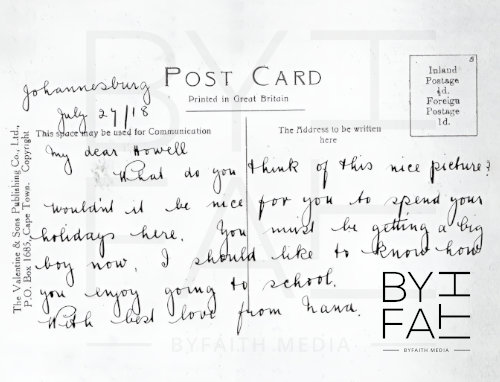 Johannesburg
July 27/18
POST CARD
Printed in Great Britain
Inland
Postage
½d.
Foreign
Postage
1d.
This space may be used for Communication
The Address to be written
here
The Valentine & Sons Publishing Co., Ltd.,
P.O. Box 1685, Cape Town. Copyright
My dear Howell
What do you think of this nice picture?
Wouldn't it be nice for you to spend your
holidays here. You must be getting a big
boy now. I should like to know how
you enjoy going to school.
With best love from Nana.
BYFAITH
BYFAITH MEDIA
BY
FAITH
BYFAITH MEDIA